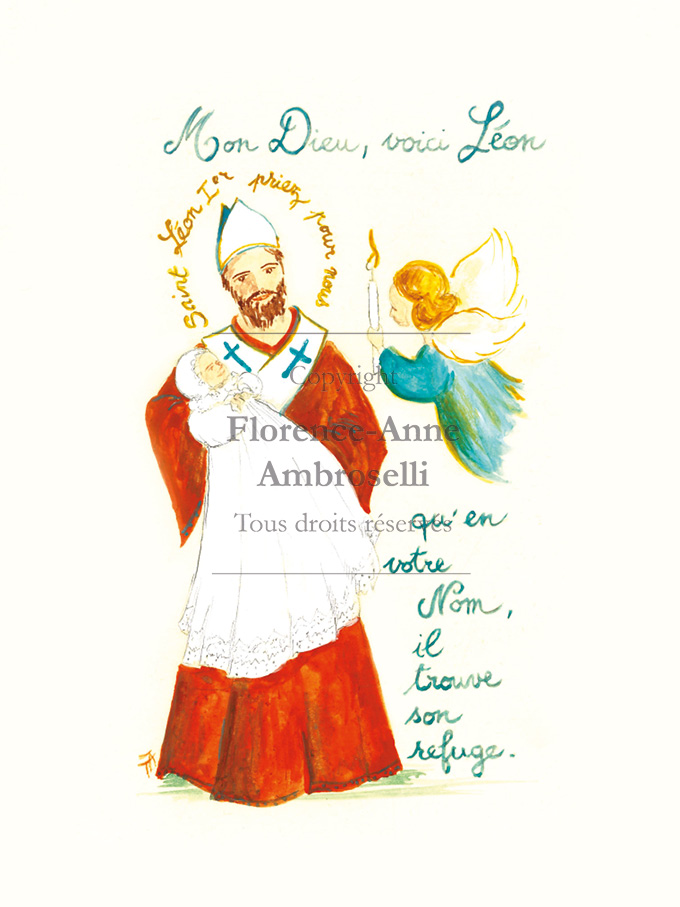 Mon Dieu, voici Léon
Saint Léon Ier priez pour nous
Copyright
Florence-Anne
Ambroselli
Tous droits réservés
qu'en
votre
Nom,
il
trouve
son
refuge.